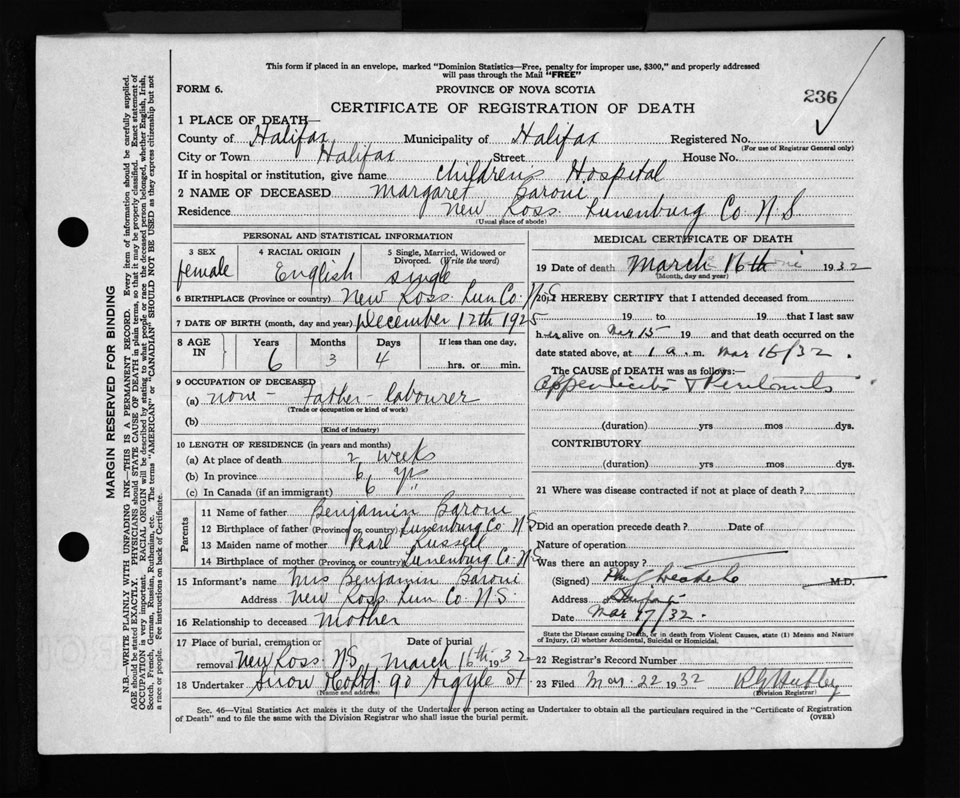 This form if placed in an envelope, marked "Dominion Statistics—Free, penalty for improper use, $300," and properly addressed
will pass through the Mail "FREE"
FORM 6.
PROVINCE OF NOVA SCOTIA
236
CERTIFICATE OF REGISTRATION OF DEATH
1 PLACE OF DEATH—
County of Halifax Municipality of Halifax Registered No.
(For use of Registrar General only)
City or Town Halifax Street House No.
If in hospital or institution, give name Children's Hospital
2 NAME OF DECEASED Margaret Baroni
Residence New Ross Lunenburg Co N.S
(Usual place of abode)
PERSONAL AND STATISTICAL INFORMATION
3 SEX
female
4 RACIAL ORIGIN
English
5 Single, Married, Widowed or
Divorced. (Write the word)
single
6 BIRTHPLACE (Province or country) New Ross Lun Co. N.S
7 DATE OF BIRTH (month, day and year) December 12th 1925
8 AGE
IN
Years
6
Months
3
Days
4
If less than one day,
hrs. or min.
9 OCCUPATION OF DECEASED
(a) none - Father - labourer
(Trade or occupation or kind of work)
(b)
(Kind of industry)
10 LENGTH OF RESIDENCE (in years and months)
(a) At place of death 2 weeks
(b) In province 6 yrs
(c) In Canada (if an immigrant) 6 "
Parents
11 Name of father Benjamin Baroni
12 Birthplace of father (Province or country) Lunenburg Co N S
13 Maiden name of mother Pearl Russell
14 Birthplace of mother (Province or country) Lunenburg Co. N S
15 Informant's name Mrs Benjamin Baroni
Address New Ross Lun Co N.S.
16 Relationship to deceased Mother
17 Place of burial, cremation or Date of burial
removal New Ross N.S March 16th 1932
18 Undertaker Snow 90 Argyle St
(Name and address)
MEDICAL CERTIFICATE OF DEATH
19 Date of death March 16th 1932
(Month, day and year)
20 I HEREBY CERTIFY that I attended deceased from
19 to 19 that I last saw
her alive on Mar 15 19 and that death occurred on the
date stated above, at 1 a.m. Mar 16/32.
The CAUSE OF DEATH was as follows:—
Appendicitis & Peritonitis
(duration) yrs mos dys.
CONTRIBUTORY
(duration) yrs mos dys.
21 Where was disease contracted if not at place of death?
Did an operation precede death? Date of
Nature of operation
Was there an autopsy?
(Signed) M.D.
Address
Date Mar 17/32.
State the Disease causing Death, or in death from Violent Causes, state (1) Means and Nature
of Injury, (2) whether Accidental, Suicidal or Homicidal.
22 Registrar's Record Number
23 Filed Mar. 22 1932
(Division Registrar)
Sec. 46—Vital Statistics Act makes it the duty of the Undertaker or person acting as Undertaker to obtain all the particulars required in the "Certificate of Registration
of Death" and to file the same with the Division Registrar who shall issue the burial permit. (OVER)
MARGIN RESERVED FOR BINDING
N.B.—WRITE PLAINLY WITH UNFADING INK—THIS IS A PERMANENT RECORD. Every item of information should be carefully supplied.
AGE should be stated EXACTLY. PHYSICIANS should STATE CAUSE OF DEATH in plain terms, so that it may be properly classified. Exact statement of
OCCUPATION is very important. RACIAL ORIGIN will be described by stating to what people or race the deceased person belonged, whether English, Irish,
Scotch, French, German, Russian, Ruthenian, etc. The terms "AMERICAN" or "CANADIAN" SHOULD NOT BE USED as they express citizenship but not
a race or people. Fee instructions on back of Certificate.